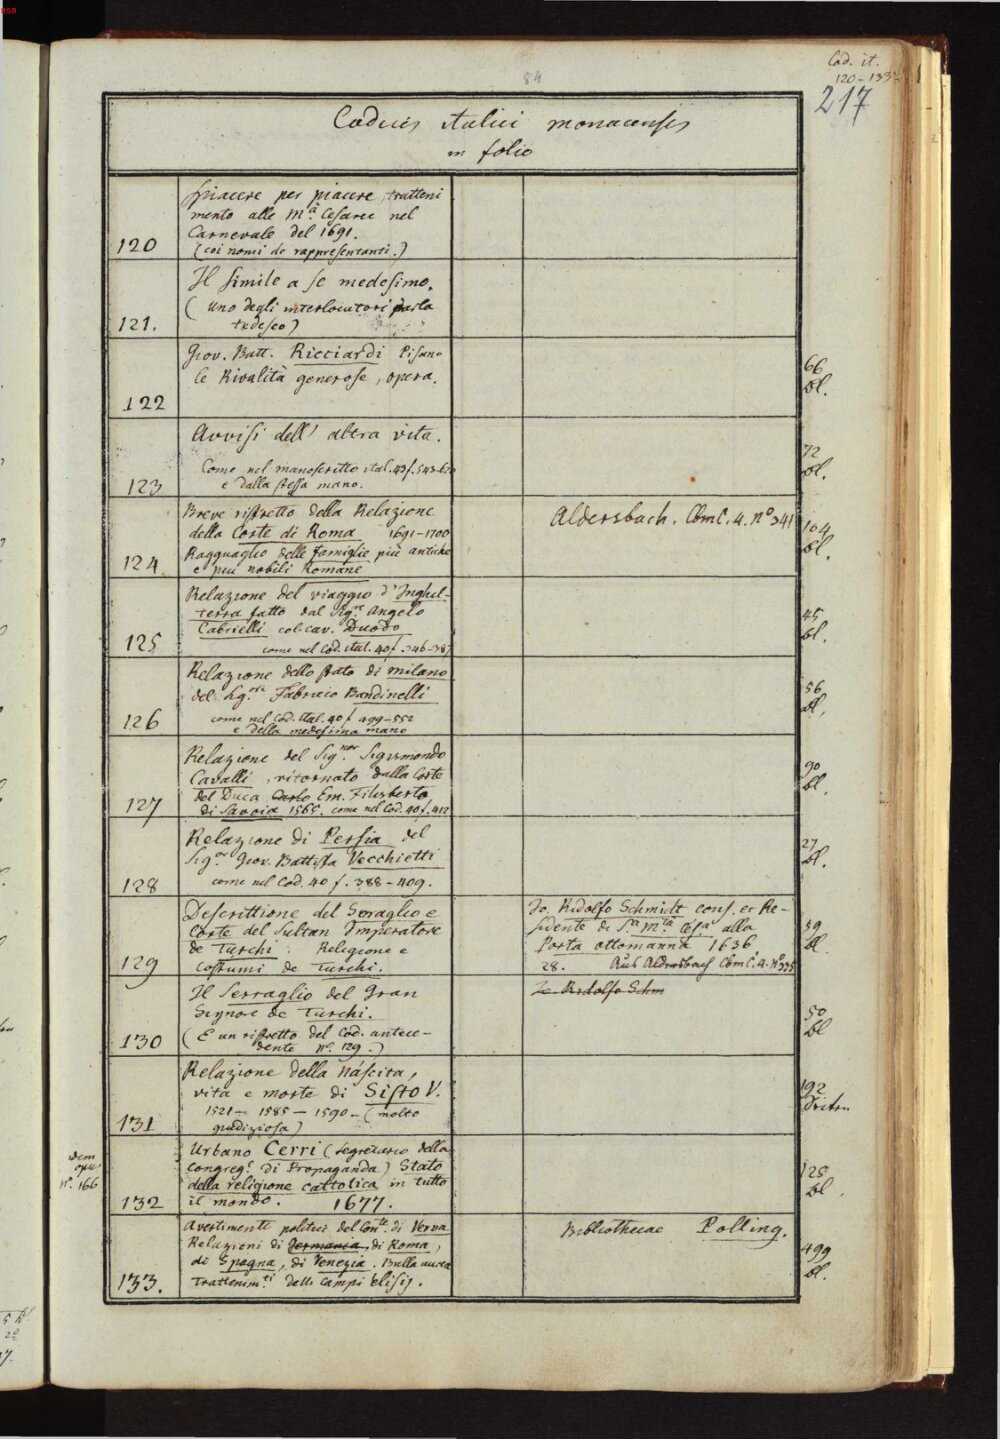 BSB
84
Cod. it.
120-133
217
Codices italici monacenses
in folio
120
Spiacere per piacere, tratteni
mento alle M.à Cesaree nel
Carnevale del 1691.
(coi nomi de rappresentanti.)
121.
Il simile a se medesimo.
(uno degli interlocutori parla
tedesco)
122
Giov. Batt. Ricciardi Pisano
le Rivalità generose, opera.
66
bl.
123
Avvisi dell' altra vita.
Come nel manoscritto ital. 43 f. 543-620
e dalla stessa mano.
72
bl.
124
Breve ristretto della Relazione
della Corte di Roma 1691-1700
Ragguaglio delle famiglie più antiche
e più nobili Romane
Aldersbach. Cbm C. 4. no 341
104
bl.
125
Relazione del viaggio d'Inghil-
terra fatto dal Sigre. Angelo
Gabrielli col cav. Duodo
come nel Cod. ital. 40 f. 346-387
45
bl.
126
Relazione dello stato di Milano
del Sgori Fabricio Bandinelli
come nel Cod. ital. 40 f 499-552
e della medesima mano
56
bl.
127
Relazione del Signor. Sigismondo
Cavalli, ritornato dalla Corte
del Duca Carlo Em. Filiberto
di Savoia 1565. come nel Cod. 40 f. 412
90
bl.
128
Relazione di Persia del
Sigor. Giov. Battista Vecchietti
come nel Cod. 40 f. 388-409.
27
bl.
129
Descrittione del Seraglio e
Corte del Sultan Imperatore
de Turchi. Religione e
costumi de Turchi.
Jo. Ridolfo Schmidt cons. et Re-
sidente di S.a M.tà Ces.a alla
Porta ottomanna 1636
28. Aus Aldersbach Cbm C. 4. No 335
59
bl.
130
Il Serraglio del Gran
Signore de Turchi.
(E un ristretto del Cod. antece-
dente no. 129.)
Jo. Ridolfo Schm
50
bl
131
Relazione della náscita,
vita e morte di Sisto V.
1521 - 1585 - 1590 - (molto
giudiziosa)
192
132
idem
opus
no. 166
Urbano Cerri (segretario della
Congreg. di Propaganda) Stato
della religione cattolica in tutto
il mondo. 1677.
125
bl.
133.
Avertimenti politici del Conte. di Verva
Relazioni di Germania, di Roma,
di Spagna, di Venezia. Bulla aurea
Trattenimti delli campi Elisij.
Bibliothecae Polling.
499
bl.